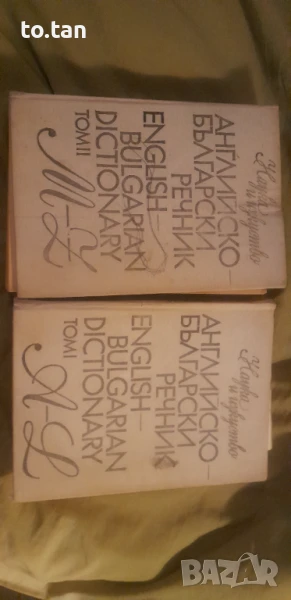 to.tan
Наука
и изкуство
АНГЛИЙСКО-
БЪЛГАРСКИ
РЕЧНИК
ENGLISH-
BULGARIAN
DICTIONARY
TOM II
M-Z
Наука
и изкуство
АНГЛИЙСКО-
БЪЛГАРСКИ
РЕЧНИК
ENGLISH-
BULGARIAN
DICTIONARY
TOM I
A-L
BAZAR